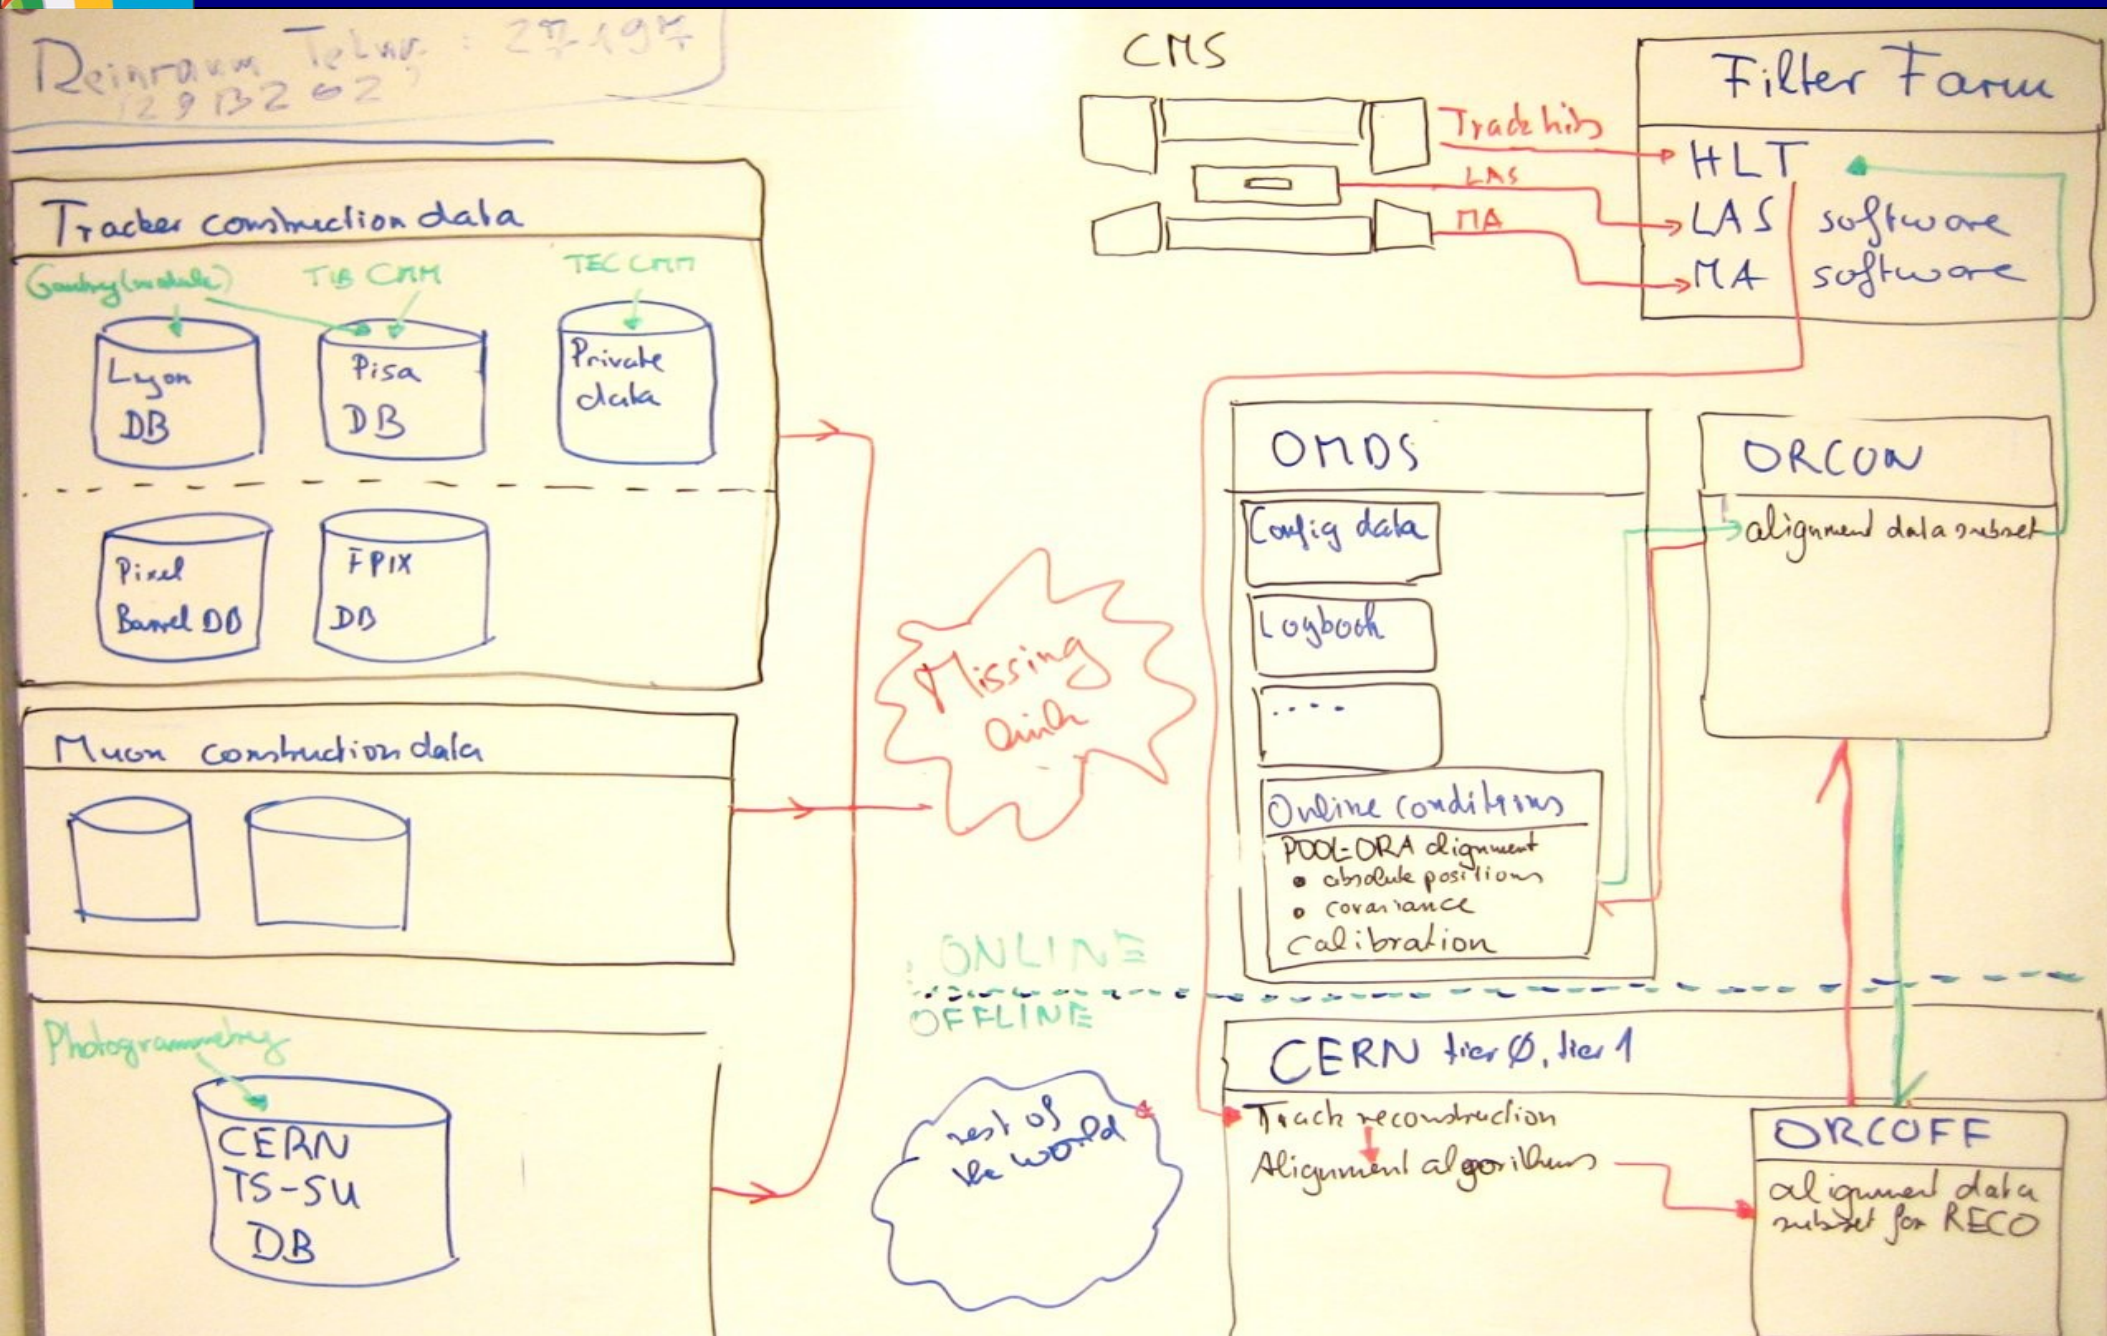 Reinraum Telnr. : 27197
29B262
Tracker construction data
Gantry (module)
TIB CMM
TEC CMM
Lyon
DB
Pisa
DB
Private
data
Pixel
Barrel DB
FPIX
DB
Muon construction data
Photogrammetry
CERN
TS-SU
DB
Missing
Link
ONLINE
OFFLINE
rest of
the world
CMS
Track hits
LAS
MA
Filter Farm
HLT
LAS software
MA software
OMDS
Config data
Logbook
....
Online conditions
POOL-ORA alignment
• absolute positions
• covariance
Calibration
ORCON
alignment data subset
CERN tier 0, tier 1
Track reconstruction
Alignment algorithms
ORCOFF
alignment data
subset for RECO